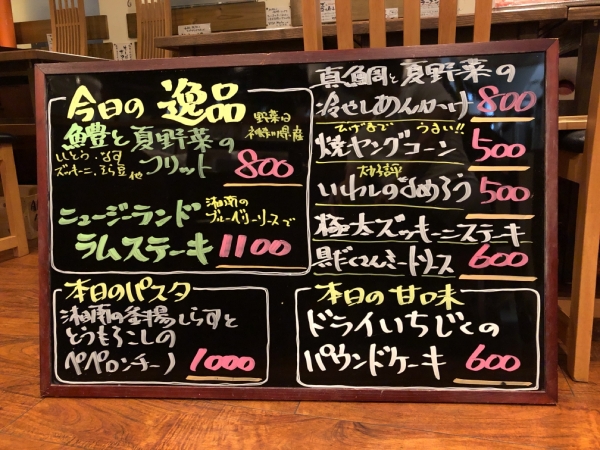 今日の 逸品
野菜は
神奈川県産
鱧と夏野菜の
ししとう、なす
ズッキーニ、そら豆や
フリット 800
ニュージーランド
湘南の
ブルーベリーソースで
ラムステーキ 1100
本日のパスタ
湘南の釜揚しらすと
とうもろこしの
ペペロンチーノ 1000
真鯛と夏野菜の
冷やしあんかけ 800
ひげまで うまい!!
焼ヤングコーン 500
大好評
いわしのなめろう 500
極太ズッキーニステーキ
具だくさんミートソース 600
本日の甘味
ドライいちじくの
パウンドケーキ 600